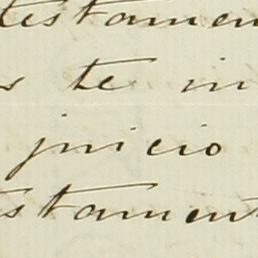 testamen
s te in
juicio
stament